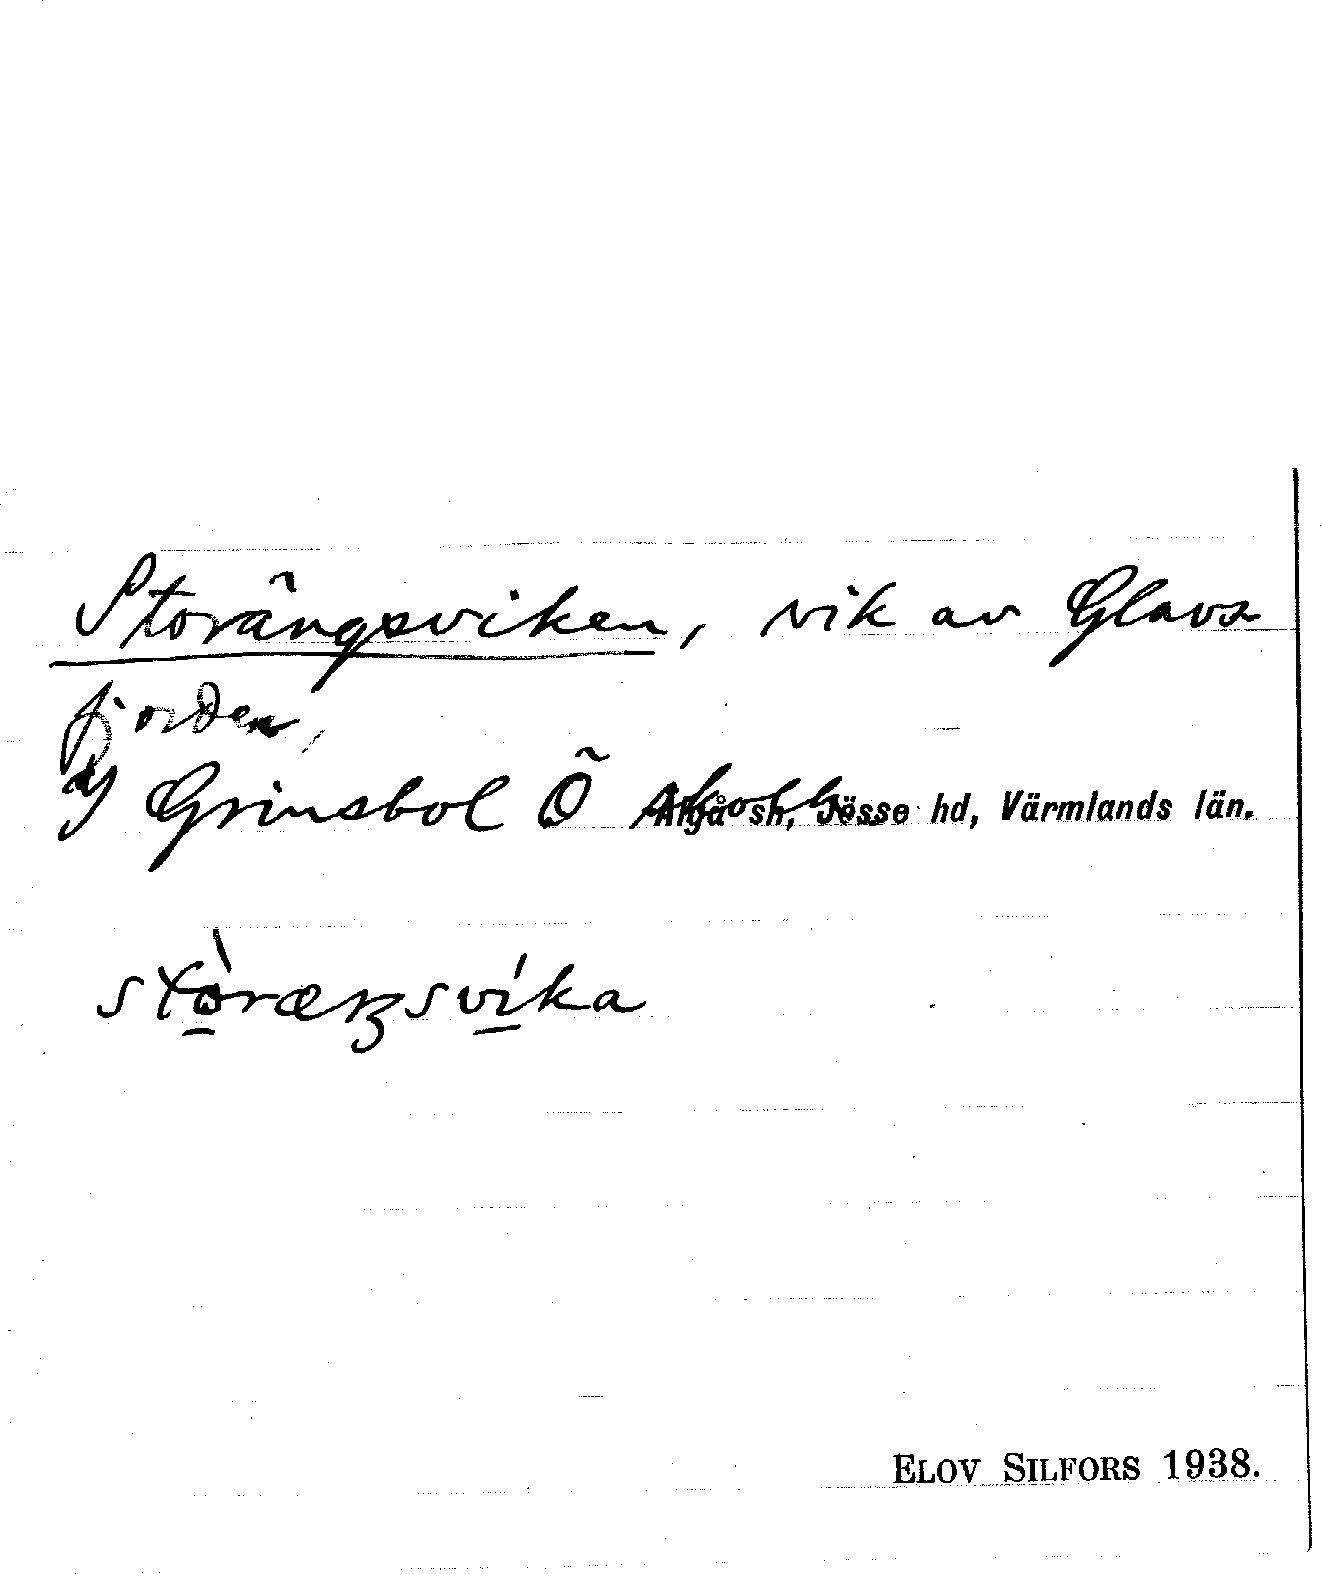 Storängsviken, vik av Glavs
fjorden,
Grinsbol Ö Älgå sn, Jösse hd, Värmlands län.
stòræŋsvíka
ELOV SILFORS 1938.